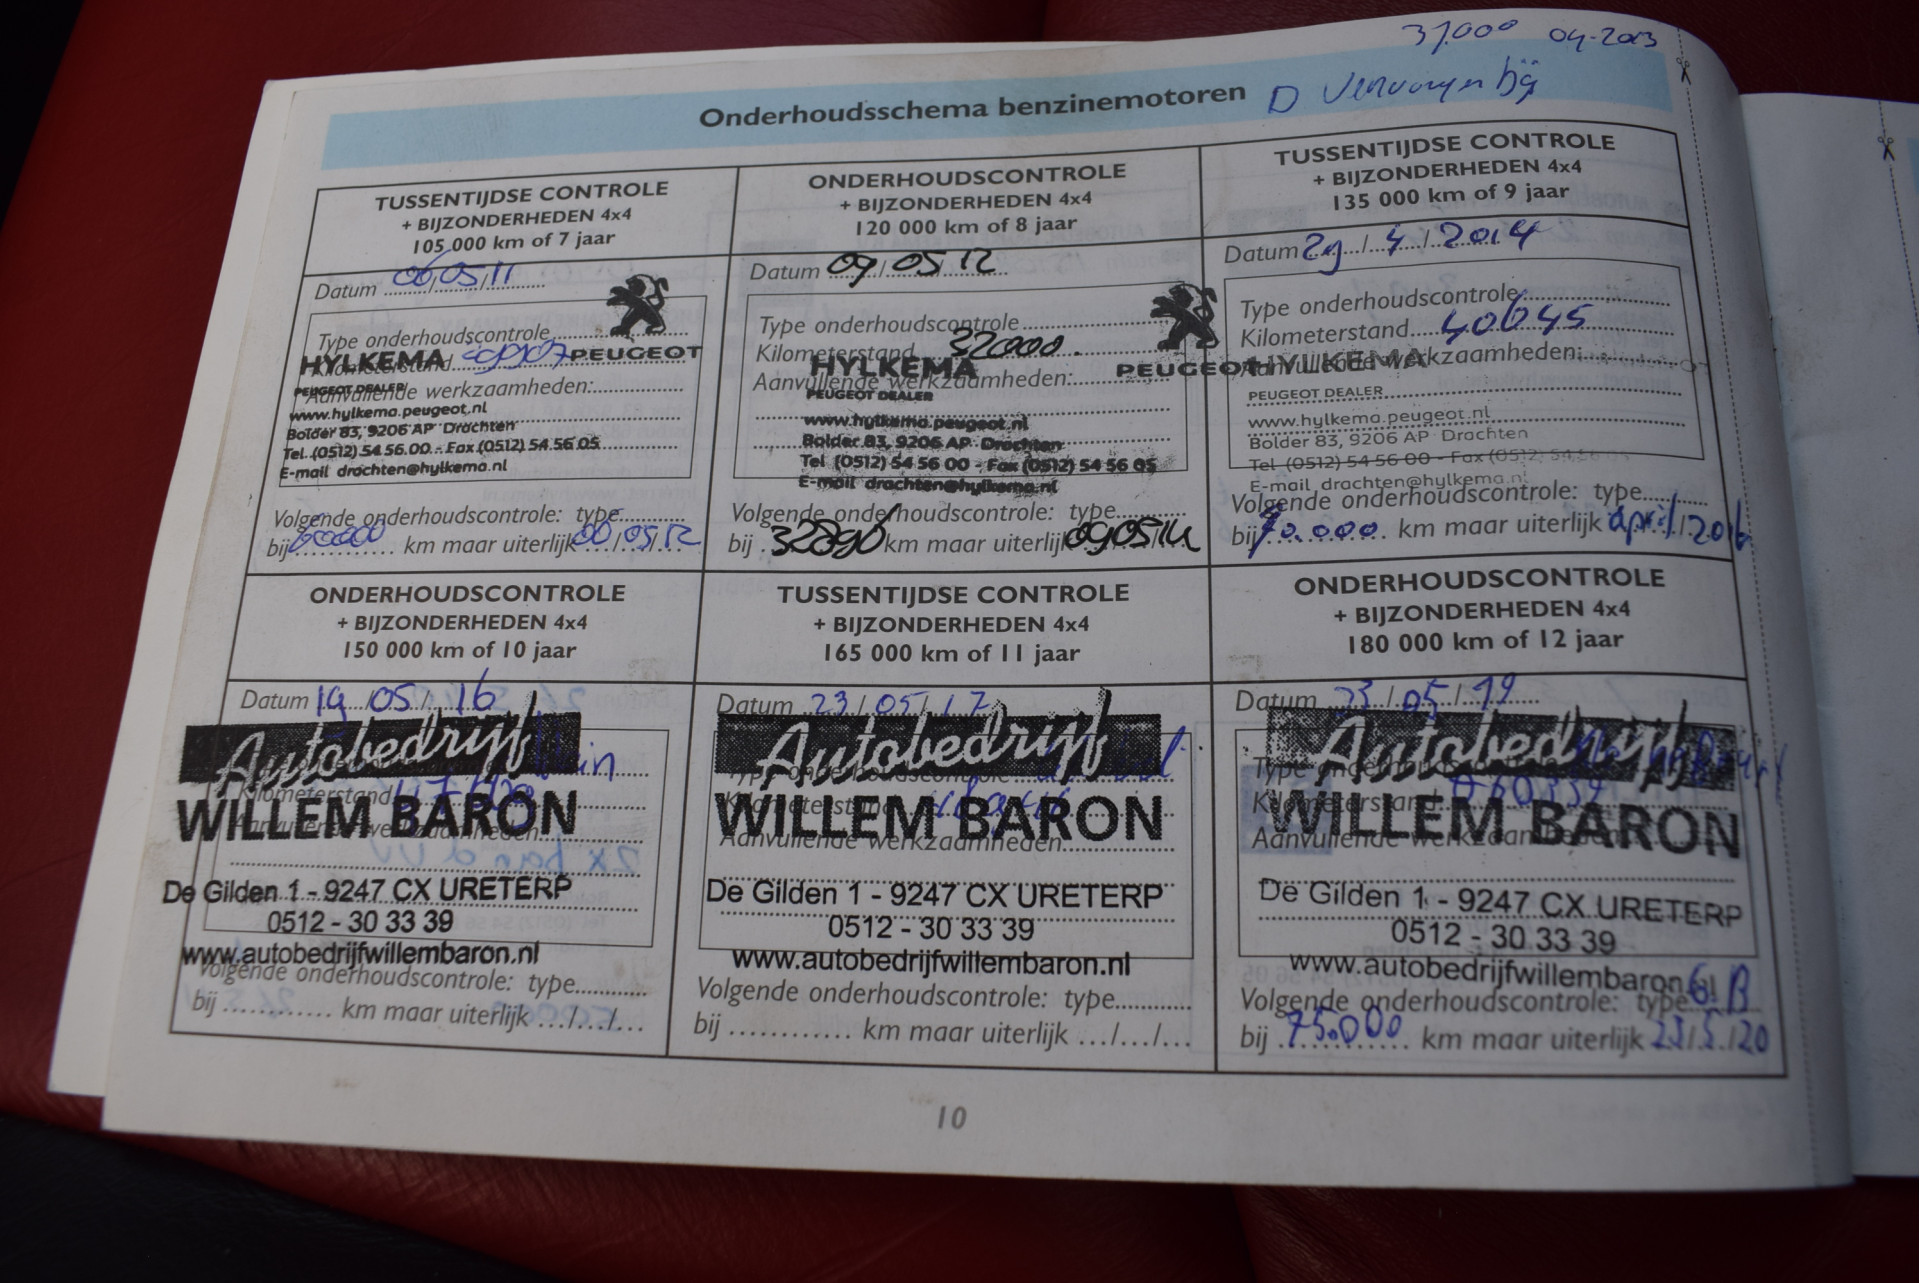 37.000 04-2013
Onderhoudsschema benzinemotoren D
TUSSENTIJDSE CONTROLE
+ BIJZONDERHEDEN 4x4
105 000 km of 7 jaar
Datum 06/05/11
Type onderhoudscontrole
HYLKEMA PEUGEOT
Kilometerstand
PEUGEOT DEALER
Aanvullende werkzaamheden:
www.hylkema.peugeot.nl
Bolder 83, 9206 AP Drachten
Tel. (0512) 54 56 00 - Fax (0512) 54 56 05
E-mail drachten@hylkema.nl
Volgende onderhoudscontrole: type
bij 60000 km maar uiterlijk 06/05/12
ONDERHOUDSCONTROLE
+ BIJZONDERHEDEN 4x4
120 000 km of 8 jaar
Datum 09/05/12
Type onderhoudscontrole
Kilometerstand 32000.
HYLKEMA PEUGEOT
Aanvullende werkzaamheden:
PEUGEOT DEALER
www.hylkema.peugeot.nl
Bolder 83, 9206 AP Drachten
Tel (0512) 54 56 00 - Fax (0512) 54 56 05
E-mail drachten@hylkema.nl
Volgende onderhoudscontrole: type
bij km maar uiterlijk 090514
TUSSENTIJDSE CONTROLE
+ BIJZONDERHEDEN 4x4
135 000 km of 9 jaar
Datum 29/4/2014
Type onderhoudscontrole
Kilometerstand 40645
HYLKEMA
Aanvullende werkzaamheden:
PEUGEOT DEALER
www.hylkema.peugeot.nl
Bolder 83, 9206 AP Drachten
Tel (0512) 54 56 00 - Fax (0512) 54 56 05
E-mail drachten@hylkema.nl
Volgende onderhoudscontrole: type
bij 70.000 km maar uiterlijk april/2016
ONDERHOUDSCONTROLE
+ BIJZONDERHEDEN 4x4
150 000 km of 10 jaar
Datum 19/05/16
Autobedrijf
Kilometerstand
WILLEM BARON
Aanvullende werkzaamheden:
De Gilden 1 - 9247 CX URETERP
0512 - 30 33 39
www.autobedrijfwillembaron.nl
Volgende onderhoudscontrole: type
bij km maar uiterlijk .../.../...
TUSSENTIJDSE CONTROLE
+ BIJZONDERHEDEN 4x4
165 000 km of 11 jaar
Datum 23/05/17
Autobedrijf
Type onderhoudscontrole
Kilometerstand
WILLEM BARON
Aanvullende werkzaamheden:
De Gilden 1 - 9247 CX URETERP
0512 - 30 33 39
www.autobedrijfwillembaron.nl
Volgende onderhoudscontrole: type
bij km maar uiterlijk .../.../...
ONDERHOUDSCONTROLE
+ BIJZONDERHEDEN 4x4
180 000 km of 12 jaar
Datum 23/05/19
Autobedrijf
Type onderhoudscontrole
Kilometerstand
WILLEM BARON
Aanvullende werkzaamheden:
De Gilden 1 - 9247 CX URETERP
0512 - 30 33 39
www.autobedrijfwillembaron.nl
Volgende onderhoudscontrole: type G.B
bij 75.000 km maar uiterlijk 23/5/20
10